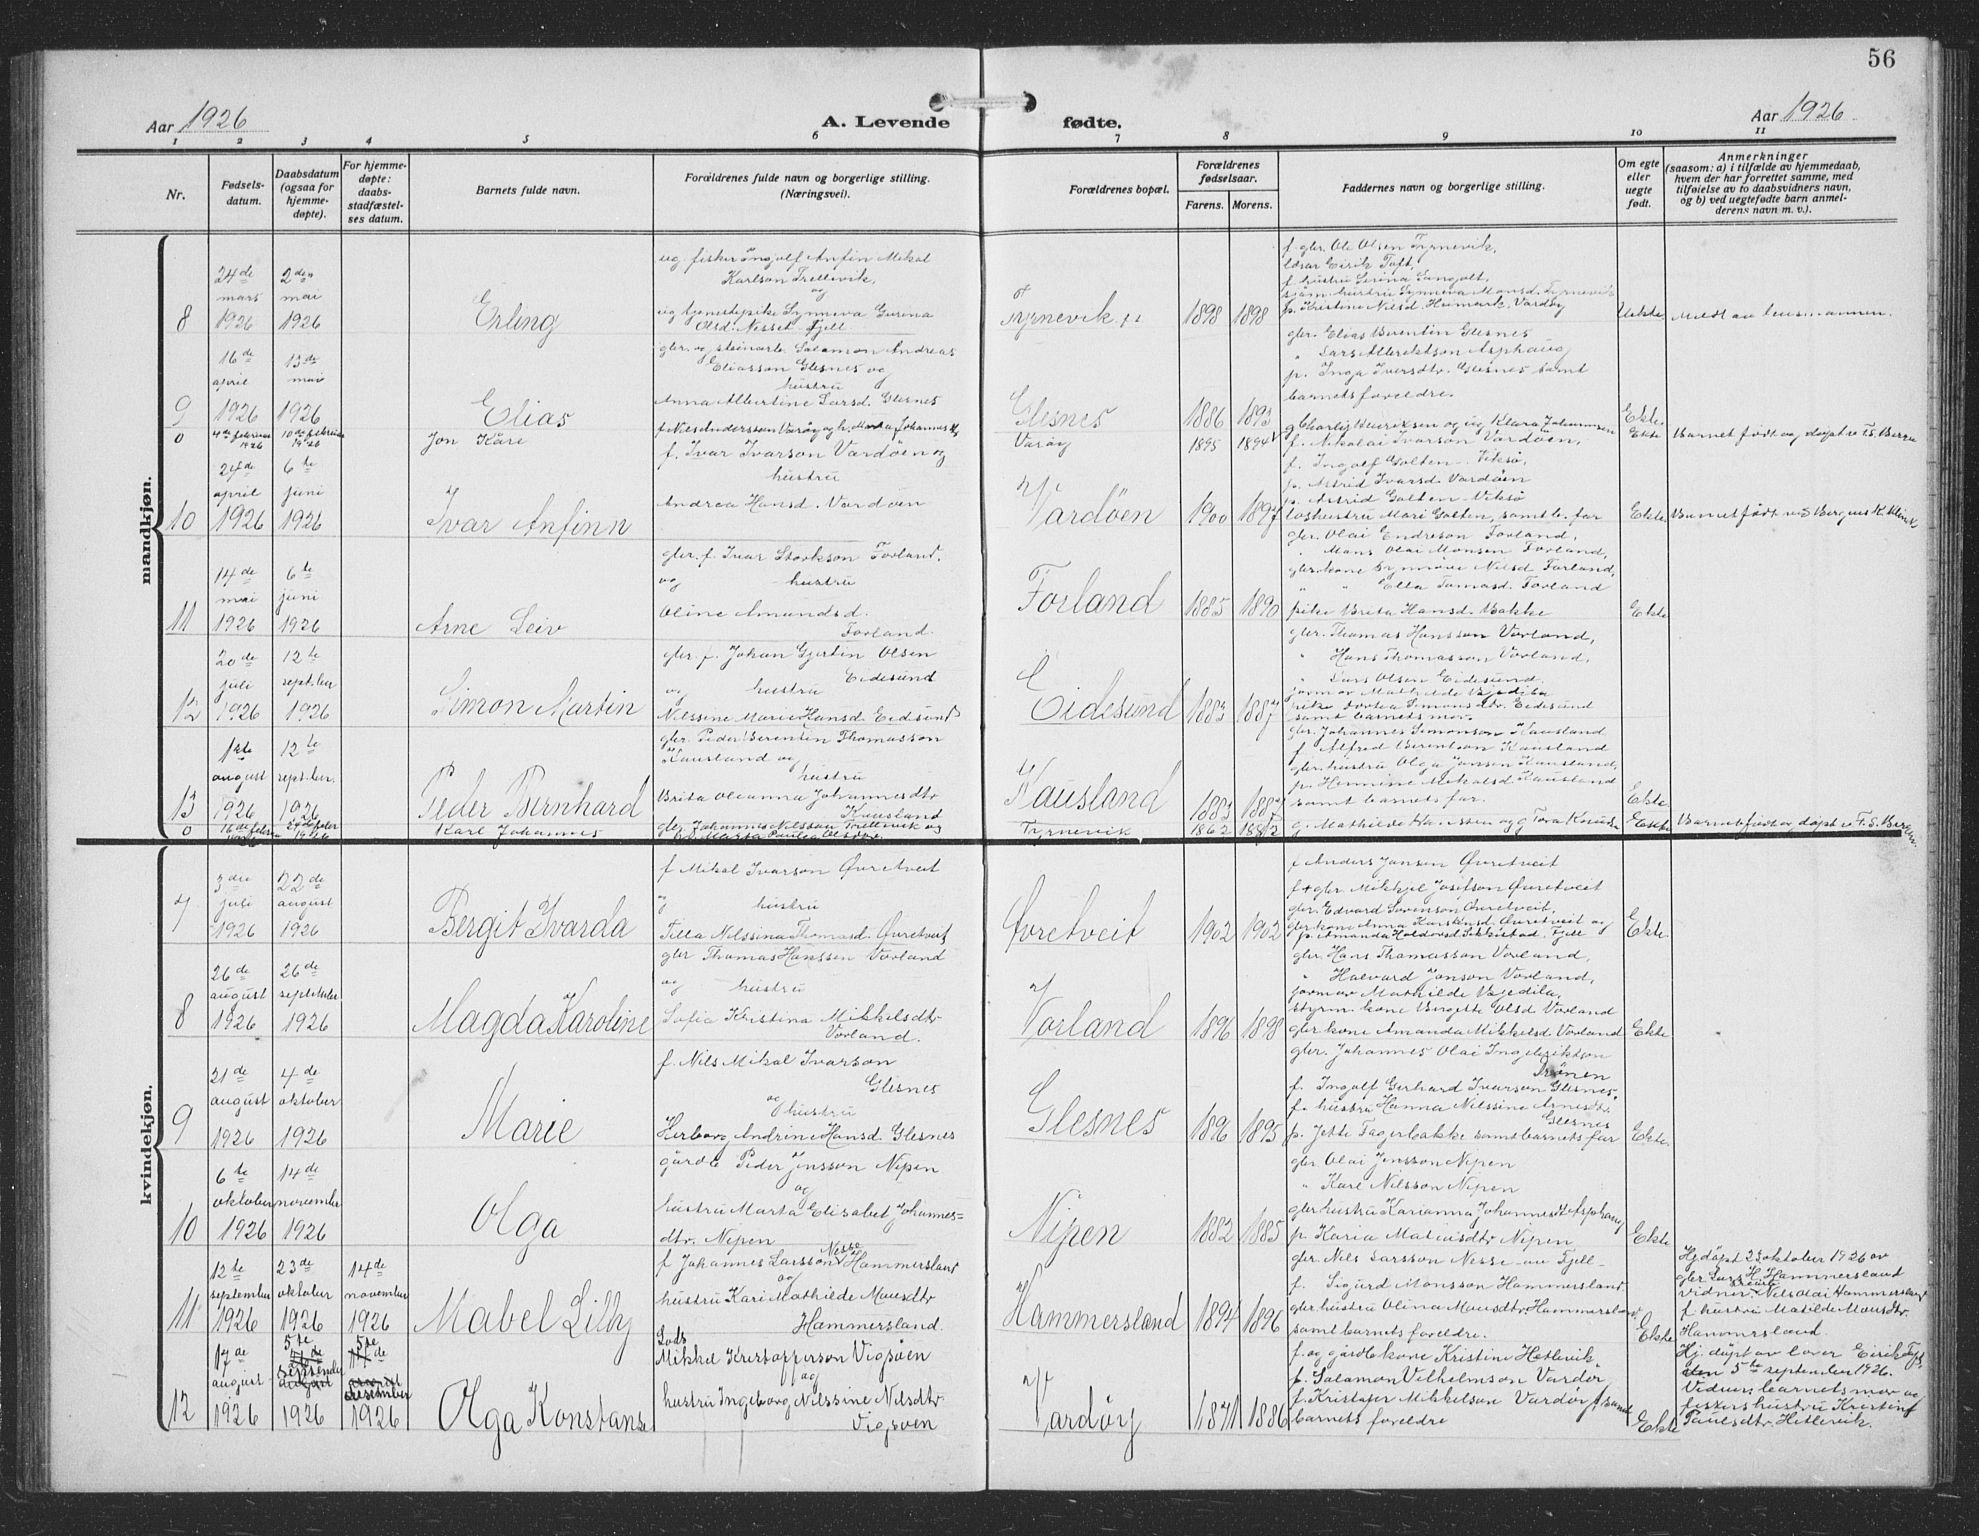 56
Aar 1926 A. Levende fødte. Aar 1926
1 2 3 4 5 6 7 8 9 10 11
Nr.
Fødsels-
datum.
Daabsdatum
(ogsaa for
hjemme-
døpte).
For hjemme-
døpte:
daabs-
stadfæstel-
ses datum.
Barnets fulde navn.
Forældrenes fulde navn og borgerlige stilling.
(Næringsvei).
Forældrenes bopæl.
Forældrenes
fødselsaar.
Farens. Morens.
Faddernes navn og borgerlige stilling.
Om egte
eller
uegte
født.
Anmerkninger
(saasom: a) i tilfælde av hjemmedaab,
hvem der har forrettet samme, med
tilføielse av to daabsvidners navn,
og b) ved uegtefødte barn anmel-
derens navn m. v.).
mandkjøn.
8
24de
mars
1926
2den
mai
1926
Erling
ug. fisker Ingolf Anfin Mikal
Karlson Trellevik,
og
ug tjenestepike Synneva Gurina
Olsd. Nesset - Fjell
Tyrnevik
1898 1898
f. gbr. Ole Olsen Tyrnevik,
lærar Eirik Toft,
f. hustru Serina Langolt,
sjøm. hustru Synneva Monsd. Tyrnevik
p. Kristine Nilsd. Heimark. Vardøy
Uekte
Meldt av lensmannen.
9
16de
april
1926
13de
mai
1926
Elias
gbr. og steinarb. Salamon Andreas
Eliasson Glesnes og
hustru
Anna Albertine Larsd. Glesnes
Glesnes
1886 1893
gbr. Elias Berentin Glesnes
" Lars Albriktson Asphaug
p. Inga Iversdtr. Glesnes samt
barnets foreldre.
Ekte
0
4de februar
1926
10de februar
1926
Jon Kåre
f. Nils Andersson Varøy og h. Marta Johannesd.
Varøy
1895 1894
g Charlis Henriksen og ug Klara Johannsen
Ekte
Barnet født og døpt v. F.S. Bergen
10
24de
april
1926
6te
juni
1926
Ivar Anfinn
f. Ivar Ivarson Vardøen og
hustru
Andrea Hansd. Vardøen
Vardøen
1900 1897
f. Nikolai Ivarson Vardøen,
f. Ingolf Golten - Viksø,
p. Astrid Ivarsd. Vardøen
p. Astrid Golten - Viksø
loshustru Mari Golten, samt b. far
Ekte
Barnet født ved Bergens K. klinik
11
14de
mai
1926
6te
juni
1926
Arne Leiv
gbr. f. Ivar Storkson Forland.
og hustru
Oline Amundsd.
Forland.
Forland
1885 1890
gbr. Olai Endreson Forland,
" Mons Olai Monsen Forland,
gbr. kone Synnøve Nilsd Forland,
" Ella Tomasd. Forland
pike Brita Hansd. Bakke
Ekte
12
20de
juli
1926
12te
septbr
1926
Simon Martin
gbr. f. Johan Gjertin Olsen
Eidesund
og hustru
Nilssine Marie Hansd. Eidesund
Eidesund
1883 1887
gbr. Thomas Hansson Vorland,
" Hans Thomasson Vorland,
" Lars Olsen Eidesund
jormor Mathilde Vejedila
pike Dortea Simonsdtr. Eidesund
samt barnets mor.
13
1ste
august
1926
12te
septbr.
1926
Peder Bernhard
gbr. Peder Berentin Thomasson
Kausland og
hustru
Brita Oleanna Johannesdtr
Kausland
Kausland
1883 1885
gbr. Johannes Simonson Kausland
f. Alfred Berentson Kausland
gbr. hustru Olga Jonsen Kausland,
p. Hermine Mikalsd Kausland
samt barnets far.
Ekte.
0
16de febru
1926
24de febr
1926
Karl Johannes
gbr. Johannes Nilsson Trellevik og
h. Marta Paulea Olsdtr.
Tyrnevik
1862 1882
g. Mathilde Hanssen og g Tora Knuds
Ekte
Barnet født og døpt v. F. S. Bergen.
kvindekjøn.
7
3die
juli
1926
22de
august
1926
Bergit Ivarda
f Mikal Ivarson Øvretveit
og hustru
Tilla Nilssina Thomasd. Øvretveit
Øvretveit
1902 1902
f Anders Jansen Øvretveit
f + gbr. Mikkjel Josefson Øvretveit
gbr. Edvard Sørenson Øvretveit,
gbr kone Anna Karstensd. Øvretveit og
p. Amanda Haldorsd Sekkistad. Fjell
Ekte.
8
26de
august
1926
26de
septembr
1926
Magda Karoline
gbr Thomas Hanssen Vorland
og hustru
Sofia Kristina Mikkelsdtr
Vorland.
Vorland
1896 1898
gbr. Hans Thomasson Vorland,
" Halvard Jonson Vorland,
jormor Mathilde Vejedila,
styrm. kone Bergitte Olsd Vorland
gbr kone Amanda Mikkelsd. Vorland
Ekte
9
21de
august
1926
4de
oktober
1926
Marie
f. Nils Mikal Ivarson
Glesnes
og hustru
Herborg Andrine Hansd. Glesnes
Glesnes
1896 1895
gbr. Johannes Olai Ingebriktson
Trønen
f. Ingolf Gerhard Ivarson Glesnes.
f. hustru Hanna Nilssine Arnesdtr.
Glesnes
p. Jette Fagerbakke samt barnets far
Ekte.
10
6te
oktober
1926
14de
november
1926
Olga
gårdb Peder Jensson Nipen
og
hustru Marta Elisabet Johannes-
dtr. Nipen
Nipen
1882 1885
gbr Olai Jensson Nipen
" Karl Nilsson Nipen
gbr hustru Karianna Johannesdt Asphaug
p. Karia Matiusdtr. Nipen
Ekte
11
12te
september
1926
23de
oktober
1926
14de
november
1926
Mabel Lilly
f Johannes Larsson Nesse Hammersland
og
hustru Kari Mathilde Monsdtr
Hammersland.
Hammersland
1894 1896
gbr. Nils Larsson Nesse - av Fjell -
f. Sigurd Monsson Hammersland
gbr hustru Olina Monsdtr. Hammersland
samt barnets foreldre.
Ekte
Hj.døpt 23 oktober 1926 av
gbr Lars H. Hammersland
vidner Nils Olai Hammersland
f hustru Matilde Monsdtr.
Hammersland.
12
17de
august
1926
5te
september
august
1926
5te
desember
1926
Olga Konstanse
Lods
Mikkel Kristofferson Vigsøen
og
hustru Ingeborg Nilssine Nilsdtr
Vigsøen
Vardøy
1871 1886
f. og gårdb kone Kristine Hetlevik,
f. Salamon Vilhelmson Vardøy
f. Kristofer Mikkelson Vardøy, samt
barnets foreldre
Ekte
Hj. døpt av lærer Eirik Toft,
den 5te september 1926.
Vidner, barnets mor og
fiskers hustru Kristine
Paulsdtr. Hetlevik.